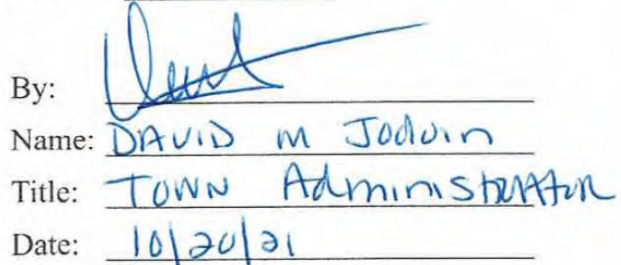 By:
Name: DAVID M Jodoin
Title: TOWN Administrator
Date: 10/20/21